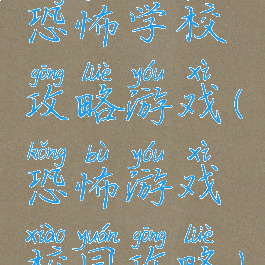 恐怖学校
gōng lüè yóu xì
攻略游戏(
kǒng bù yóu xì
恐怖游戏
xiào yuán gōng lüè
校园攻略)